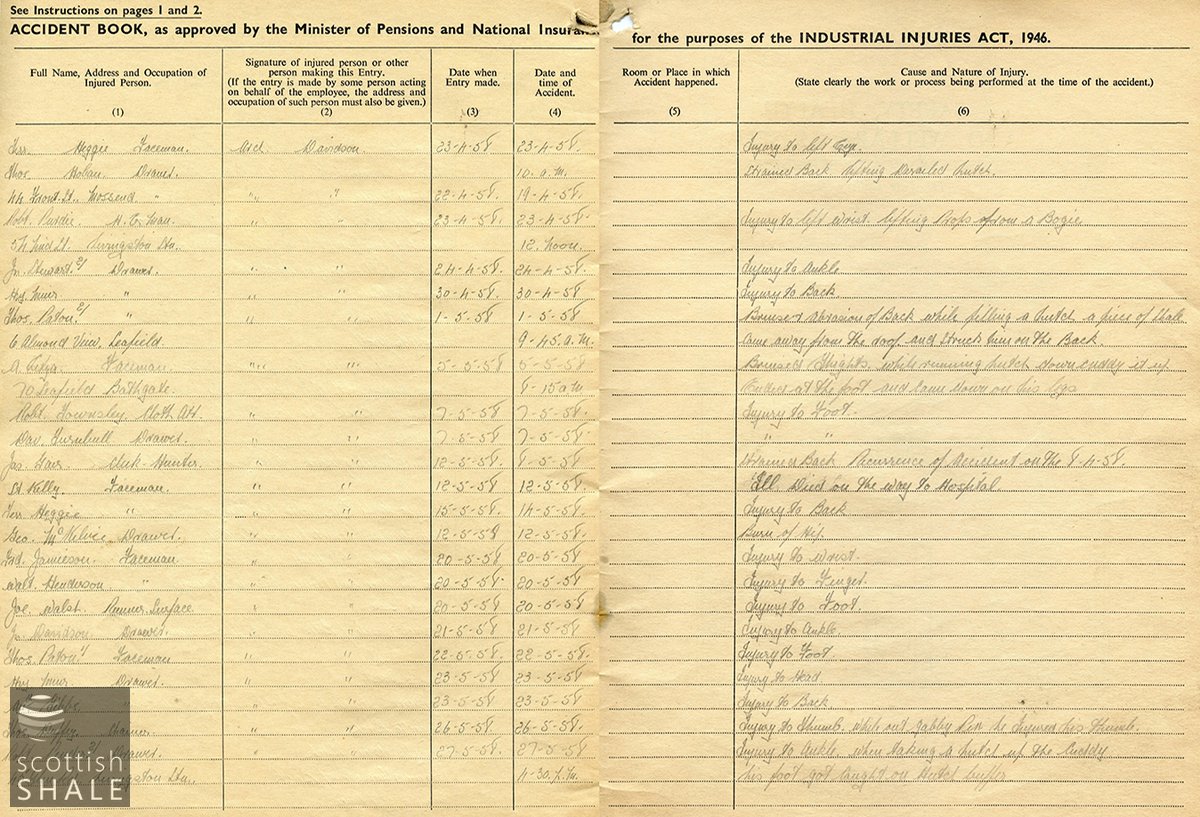 See Instructions on pages 1 and 2.
ACCIDENT BOOK, as approved by the Minister of Pensions and National Insurance for the purposes of the INDUSTRIAL INJURIES ACT, 1946.
Full Name, Address and Occupation of Injured Person. (1)
Signature of injured person or other person making this Entry. (If the entry is made by some person acting on behalf of the employee, the address and occupation of such person must also be given.) (2)
Date when Entry made. (3)
Date and time of Accident. (4)
Room or Place in which Accident happened. (5)
Cause and Nature of Injury. (State clearly the work or process being performed at the time of the accident.) (6)
Heggie Faceman. Davidson. 23-4-58 23-4-58. Injury to left Eye.
Thos. Hoban. Drawer. 10. a.m. Strained Back lifting Derailed hutch.
Front St. Mossend " " " 22-4-58. 19-4-58.
Robt. Purdie 23-4-58 23-4-58. Injury to left wrist lifting Props from a Bogie
Livingston Stn. 12. Noon.
Jn. Steward Drawer. " " 24-4-58. 24-4-58. Injury to Ankle
Hy. Muir " " " 30-4-58. 30-4-58. Injury to Back.
Thos. Paton " " " 1-5-58 1-5-58. Abrasion of Back while filling a hutch a piece of Shale
6 Almond View, Seafield 9-45 a.m. came away from the roof and struck him on the Back
Faceman. " " 5-5-58 5-5-58 while running hutch down cuddy it
70 Seafield Bathgate. 8-15 a.m at the foot and came down on his legs
Robt. Townsley " " 7-5-58 7-5-58. Injury to Foot.
Dav. Turnbull Drawer. " " 7-5-58 7-5-58. " "
Jas. " " 12-5-58. 8-5-58. Strained Back Recurrence of Accident on the 8-4-58.
Kelly. Faceman. " " 12-5-58. 12-5-58. Ill. Died on the way to Hospital.
Heggie " " " 15-5-58. 14-5-58. Injury to Back
Geo. McKelvie Drawer. " " 12-5-58. 12-5-58. Burn of Hip.
Jamieson. Faceman " " 20-5-58 20-5-58. Injury to wrist.
Walt. Henderson " " " 20-5-58. 20-5-58. Injury to Finger.
Joe. Walsh. Runner Surface " " 20-5-58. 20-5-58. Injury to Foot.
Jn. Davidson Drawer. " " 21-5-58. 21-5-58. Injury to Ankle.
Thos. Paton Faceman " " 22-5-58. 22-5-58. Injury to Foot.
Hy. Muir. Drawer. " " 23-5-58 23-5-58. Injury to Head
" " 23-5-58. 23-5-58. Injury to Back
" " 26-5-58 26-5-58. Injury to Thumb. his Thumb.
Drawer. " " 27-5-58. 27-5-58. Injury to Ankle, when taking a hutch up the Cuddy
Livingston Stn. 4-30. p.m. his foot got caught on hutch buffer
scottish
SHALE